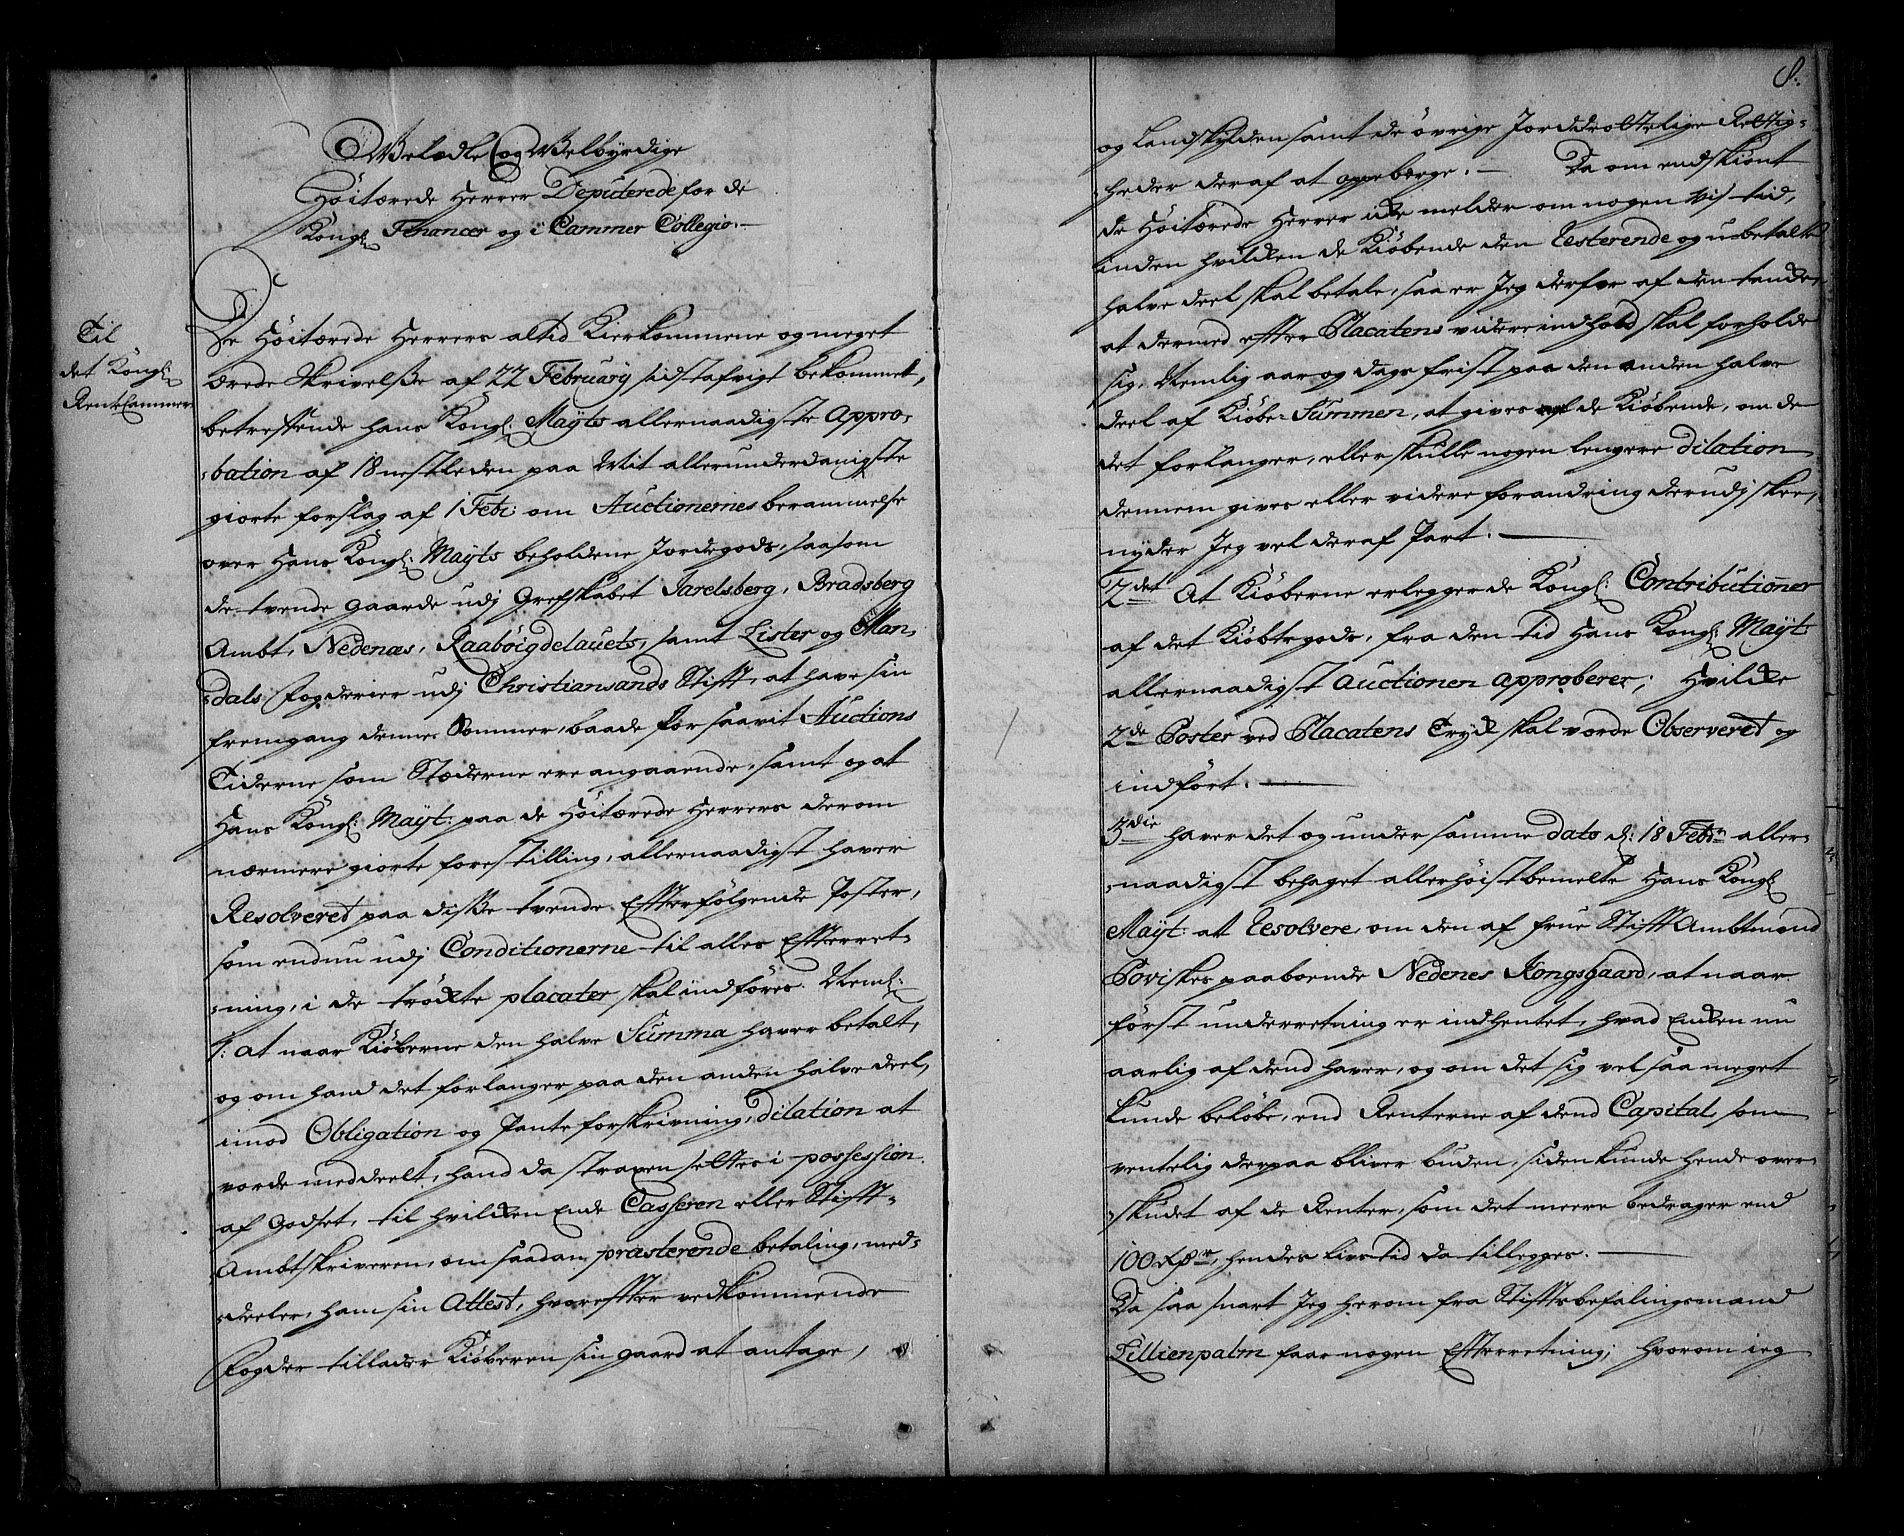 Velædle og Velbyrdige
Höitærede Herrer Deputerede for de
Kongl: Financer og i Cammer Collegio.
Til
det Kongl:
RenteCammer
De Höitærede Herrers altid Kierkommene og meget
ærede Skrivelße af 22 February sidst afvigt bekommet,
betreffende hans Kongl: Mayts allernaadigste Appro-
bation af 18 nestleden paa Mit allerunderdanigste
giorte forslag af 1 Febr: om Auctionernes berammelse
over Hans Kongl: Mayts beholdene Jordegods, saasom
de tvende gaarde udj Grefskabet Jarelsberg, Bradsberg
Ambt, Nedenæs, Raabøigdelauets, samt Lister og Man-
dals Fogderier udj Christiansands Stift, at have sin
fremgang denne Sommer, baade for saavit Auctions
Tiderne som Stæderne ere angaaende, samt og at
Hans Kongl: Mayt: paa de Höitærede Herrers derom
nærmere giorte forestilling, allernaadigst haver
Resolveret paa diße tvende Effterfölgende Poster,
som endnu udj Conditionerne til alles Effterret-
ning, i de trökte placater skal indföres. Neml:
1: at naar Kiöberne den halve Summa haver betalt,
og om hand det forlanger paa den anden halve deel,
imod Obligation og Panteforskrivning, dilation at
vorde meddeelt, hand da strapen settes i possession
af Godset, til hvilken Ende Casseren eller Stifft-
Ambtskriveren, om saadan præsterende betaling, med-
deeler ham sin Attest, hvoreffter vedkommende
Fogder tillader Kiöberen sin gaard at antage,
8.
og Landskylden samt de övrige Jorddrottelige Rettig-
heder deraf at oppebærge. Da om endskiönt
de Höitærede Herrer icke melder om nogen vis tid,
inden hvilken de Kiöbende den resterende og ubetalte
halve deel skal betale, saa er Jeg derfor af den tanke,
at dermed effter Placatens videre indhold skal forholde
sig, Nemlig aar og dags frist paa den anden halve
deel af Kiöbe-Summen, at gives de Kiöbende, om de
det forlanger, eller skulle nogen lengere dilation
dennem gives eller videre forandring derudj skee,
nyder Jeg vel deraf Part.
2det At Kiöberne erlegger de Kongl: Contributioner
af det Kiöbte gods, fra den tid Hans Kongl: Mayt:
allernaadigst Auctionen approberer; Hvilke
2de Poster ved Placatens Tryk skal vorde Observeret og
indfört.
3die haver det og under samme dato d: 18 Febr: aller-
naadigst behaget allerhöistbemelte Hans Kongl:
Mayt: at resolvere, om den af frue Stifft Ambtmand
Poviskes paaboende Nedenes Kongsgaard, at naar
först underretning er indhentet, hvad Enken nu
aarlig af dend haver, og om det sig vel saa meget
kunde belöbe, end Renterne af dend Capital, som
ventelig derpaa bliver buden, siden kunde hende over-
skudet af de Renter, som det meere bedrager end
100 Rdr, hendes livs tid da tillegges.
Da saa snart Jeg herom fra Stifftsbefalingsmand
Lillienpalm faar nogen Effterretning; hvorom ieg